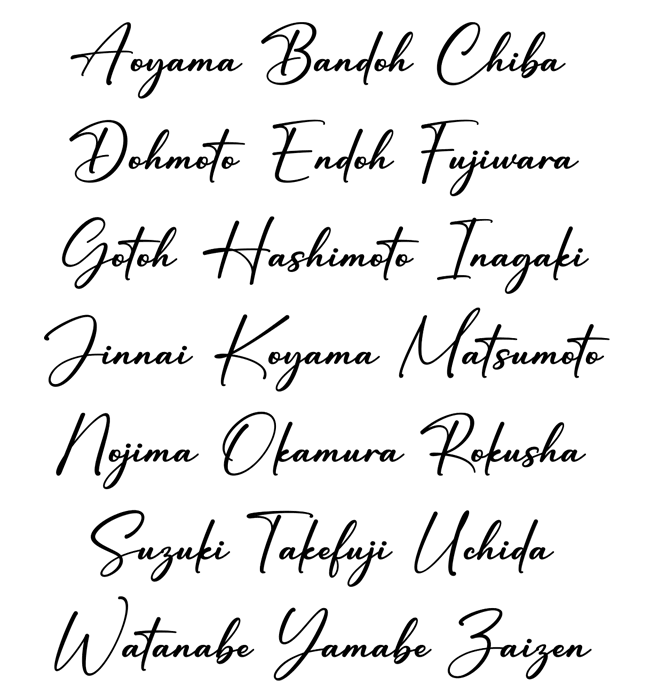 Aoyama Bandoh Chiba
Dohmoto Endoh Fujiwara
Gotoh Hashimoto Inagaki
Jinnai Koyama Matsumoto
Nojima Okamura Rokusha
Suzuki Takefuji Uchida
Watanabe Yamabe Zaizen